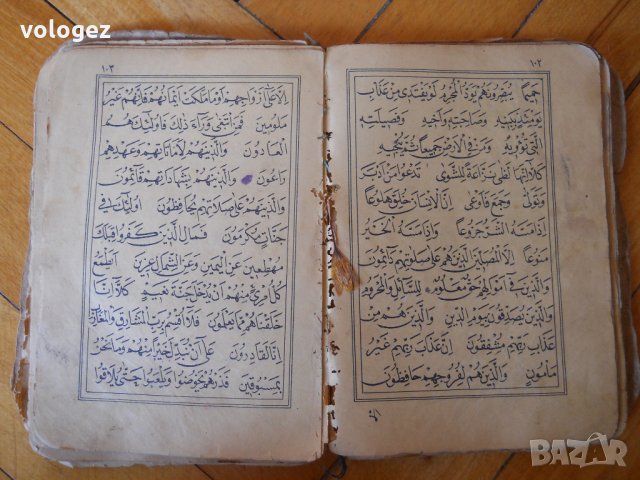 vologez
١٠٢
حميماً يبصرونهم يود المجرم لو يفتدى من عذاب
يومئذ ببنيه وصاحبته وأخيه وفصيلته
التي تؤويه ومن في الأرض جميعاً ثم ينجيه
كلا إنها لظى نزاعة للشوى تدعوا من أدبر
وتولى وجمع فأوعى إن الإنسان خلق هلوعاً
إذا مسه الشر جزوعاً وإذا مسه الخير
منوعاً إلا المصلين الذين هم على صلوتهم دائمون
والذين في أموالهم حق معلوم للسائل والمحروم
والذين يصدقون بيوم الدين والذين هم من
عذاب ربهم مشفقون إن عذاب ربهم غير
مأمون والذين هم لفروجهم حافظون
إلا
١٠٣
إلا على أزواجهم أو ما ملكت أيمانهم فإنهم غير
ملومين فمن ابتغى وراء ذلك فأولئك هم
العادون والذين هم لأماناتهم وعهدهم
راعون والذين هم بشهاداتهم قائمون
والذين هم على صلاتهم يحافظون أولئك في
جنات مكرمون فمال الذين كفروا قبلك
مهطعين عن اليمين وعن الشمال عزين أيطمع
كل امرئ منهم أن يدخل جنة نعيم كلا إنا
خلقناهم مما يعلمون فلا أقسم برب المشارق والمغارب
إنا لقادرون على أن نبدل خيراً منهم وما نحن
بمسبوقين فذرهم يخوضوا ويلعبوا حتى يلاقوا
BAZAR
bg